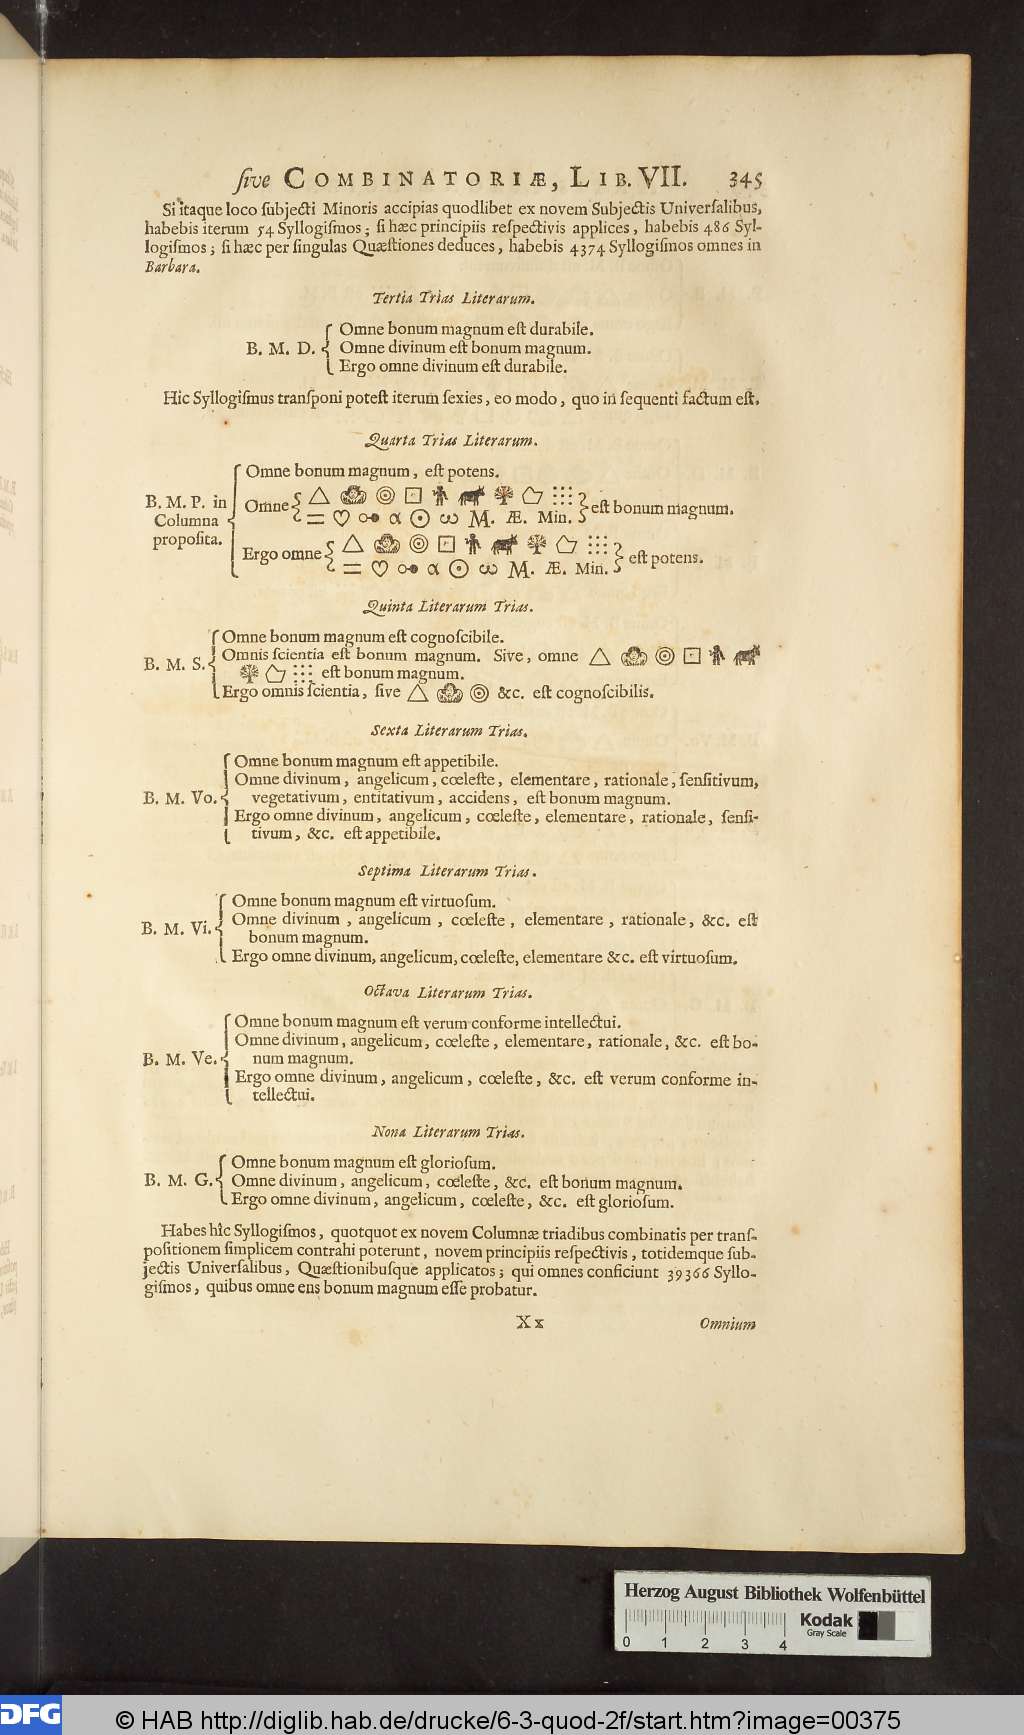 ſive COMBINATORIÆ, LIB. VII. 345
Si itaque loco ſubjecti Minoris accipias quodlibet ex novem Subjectis Univerſalibus,
habebis iterum 54 Syllogiſmos; ſi hæc principiis reſpectivis applices, habebis 486 Syl-
logiſmos; ſi hæc per ſingulas Quæſtiones deduces, habebis 4374 Syllogiſmos omnes in
Barbara.
Tertia Trias Literarum.
Omne bonum magnum eſt durabile.
B. M. D. Omne divinum eſt bonum magnum.
Ergo omne divinum eſt durabile.
Hic Syllogiſmus tranſponi poteſt iterum ſexies, eo modo, quo in ſequenti factum eſt.
Quarta Trias Literarum.
Omne bonum magnum, eſt potens.
B. M. P. in
Columna
propoſita.
Omne △ ◎ ⊡ eſt bonum magnum.
= ♡ α ⊙ ω M. Æ. Min.
Ergo omne △ ◎ ⊡ eſt potens.
= ♡ α ⊙ ω M. Æ. Min.
Quinta Literarum Trias.
Omne bonum magnum eſt cognoſcibile.
B. M. S. Omnis ſcientia eſt bonum magnum. Sive, omne △ ◎ ⊡
eſt bonum magnum.
Ergo omnis ſcientia, ſive △ ◎ &c. eſt cognoſcibilis.
Sexta Literarum Trias.
Omne bonum magnum eſt appetibile.
Omne divinum, angelicum, cœleſte, elementare, rationale, ſenſitivum,
B. M. Vo. vegetativum, entitativum, accidens, eſt bonum magnum.
Ergo omne divinum, angelicum, cœleſte, elementare, rationale, ſenſi-
tivum, &c. eſt appetibile.
Septima Literarum Trias.
Omne bonum magnum eſt virtuoſum.
B. M. Vi. Omne divinum, angelicum, cœleſte, elementare, rationale, &c. eſt
bonum magnum.
Ergo omne divinum, angelicum, cœleſte, elementare &c. eſt virtuoſum.
Octava Literarum Trias.
Omne bonum magnum eſt verum conforme intellectui.
Omne divinum, angelicum, cœleſte, elementare, rationale, &c. eſt bo-
B. M. Ve. num magnum.
Ergo omne divinum, angelicum, cœleſte, &c. eſt verum conforme in-
tellectui.
Nona Literarum Trias.
Omne bonum magnum eſt glorioſum.
B. M. G. Omne divinum, angelicum, cœleſte, &c. eſt bonum magnum.
Ergo omne divinum, angelicum, cœleſte, &c. eſt glorioſum.
Habes hîc Syllogiſmos, quotquot ex novem Columnæ triadibus combinatis per tranſ-
poſitionem ſimplicem contrahi poterunt, novem principiis reſpectivis, totidemque ſub-
jectis Univerſalibus, Quæſtionibuſque applicatos; qui omnes conficiunt 39366 Syllo-
giſmos, quibus omne ens bonum magnum eſſe probatur.
Xx Omnium
Herzog August Bibliothek Wolfenbüttel
Kodak
Gray Scale
0 1 2 3 4
DFG
© HAB http://diglib.hab.de/drucke/6-3-quod-2f/start.htm?image=00375